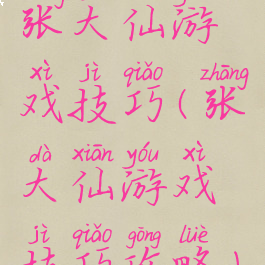 张大仙游
xì jì qiǎo zhāng
戏技巧(张
dà xiān yóu xì
大仙游戏
jì qiǎo gōng lüè
技巧攻略)